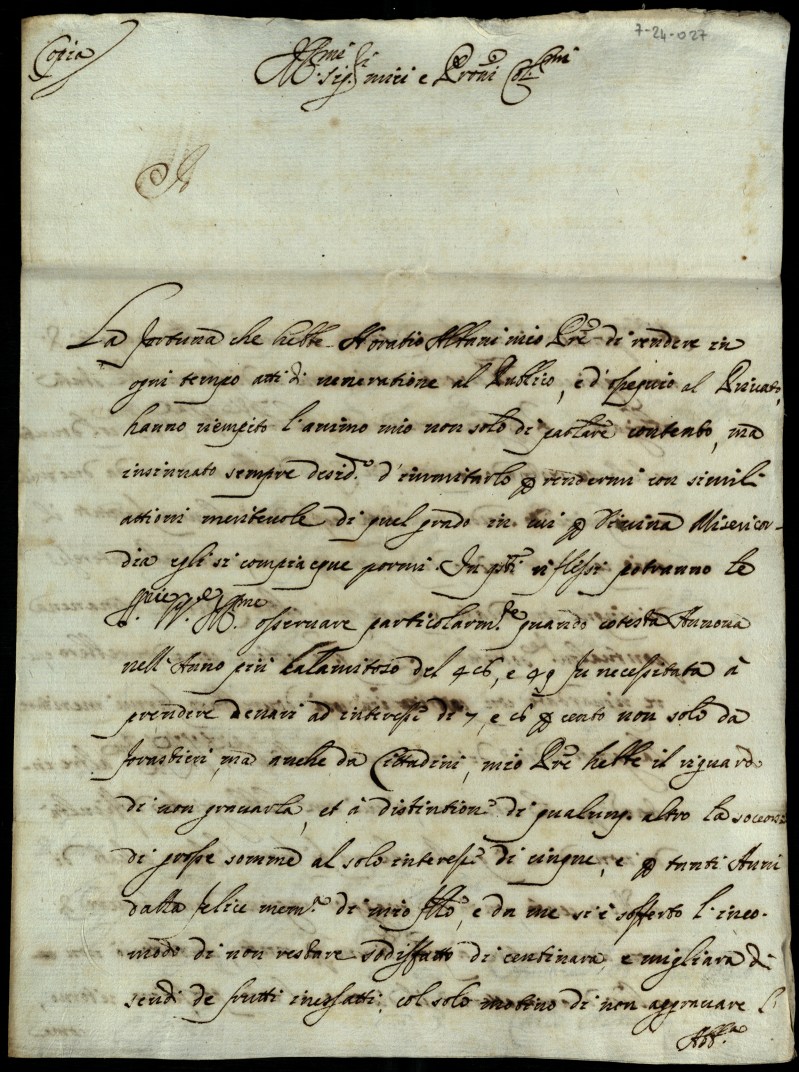 7-24-027
Copia
Ill.mi Sig.ri miei e Pron.i Col.mi
La fortuna che hebbe Horatio Altani mio Pre di rendere in
ogni tempo atti di veneratione al Publico, e d'ossequio al Privato,
hanno riempito l'animo mio non solo di partlare contento, ma
insinuato sempre desid.o d'immitarlo p rendermi con simili
attioni meritevole di quel grado in cui p Divina Misericor-
dia egli si compiacque pormi. In q.sti riflessi potranno le
SS.rie VV. Ill.me osservare particolarm.te quando cotesta Annona
nell'Anno più calamitoso del 48, e 49 fu necessitata à
prendere denari ad interesse di 7, e 8 p cento non solo da
forastieri, ma anche da Cittadini, mio Pre hebbe il riguardo
di non gravarla, et à distintion.e di qualunq. altro la soccorse
di grosse somme al solo interesse di cinque, e p tanti Anni
dalla felice mem.a di mio fllo, e da me si è sofferto l'inco-
modo di non restare sodisfatto di centinara e migliara di
scudi de frutti inesatti, col solo motivo di non aggravare l'
Abb.a